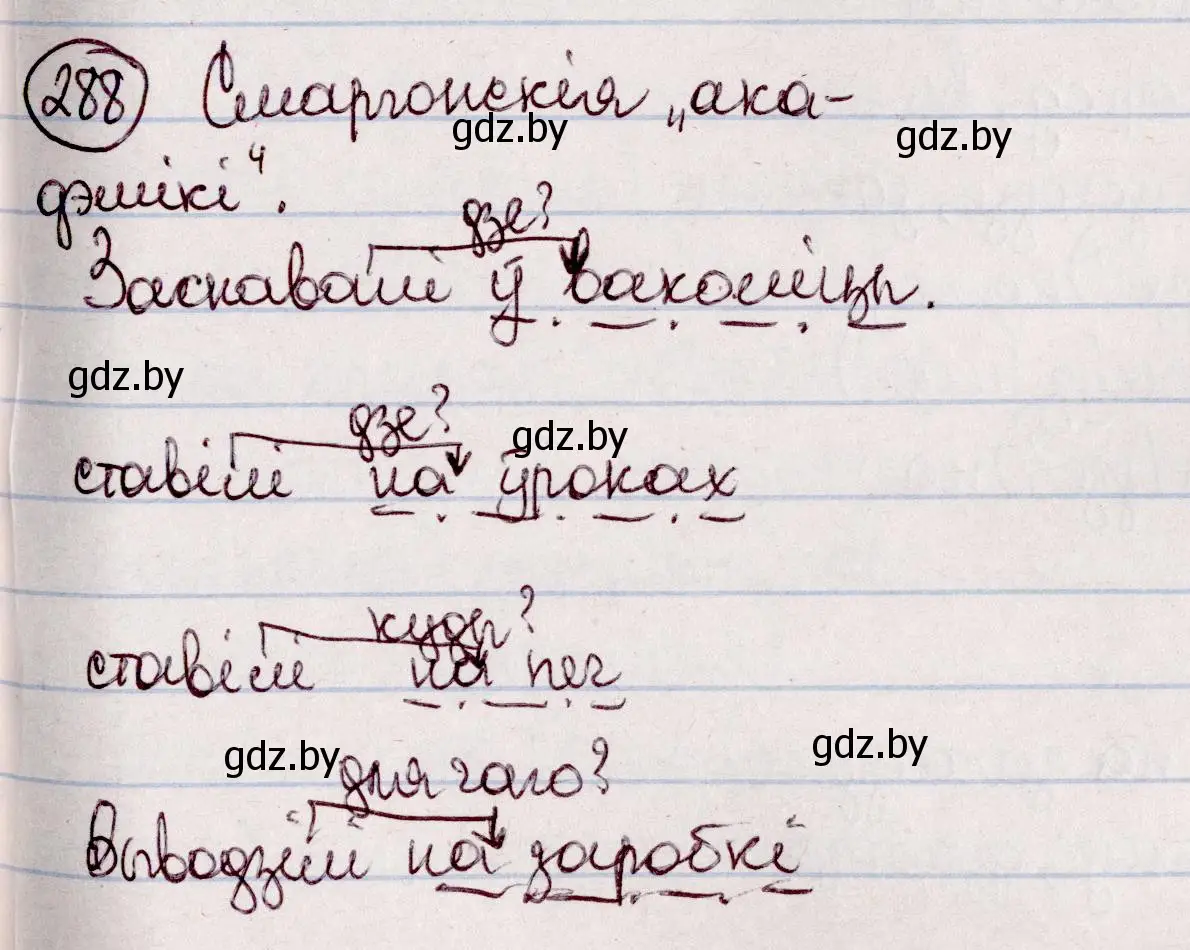 288 Смаргонскія „ака-
gdz.by
gdz.by
дэмікі“.
дзе?
Заснавалі ў ваколіцы.
gdz.by
дзе?
gdz.by
ставілі на ўроках
куды?
ставілі на печ
gdz.by
gdz.by
для чаго?
Выводзілі на заробкі